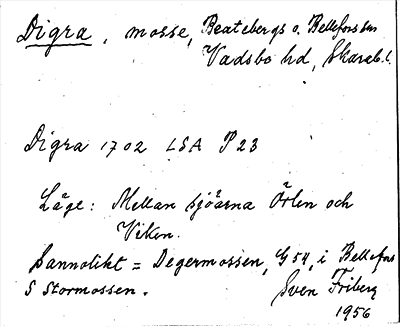 Digra, mosse, Beatebergs o. Bellefors snr
Vadsbo hd, Skarab. l.
Digra 1702 LSA P 23
Läge: Mellan sjöarna Örlen och
Viken.
Sannolikt = Degermossen, G 54, i Bellefors
S Stormossen.
Sven Friberg
1956